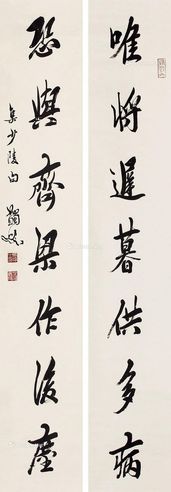 唯將遲暮供多病
恐與齊梁作後塵
集少陵句